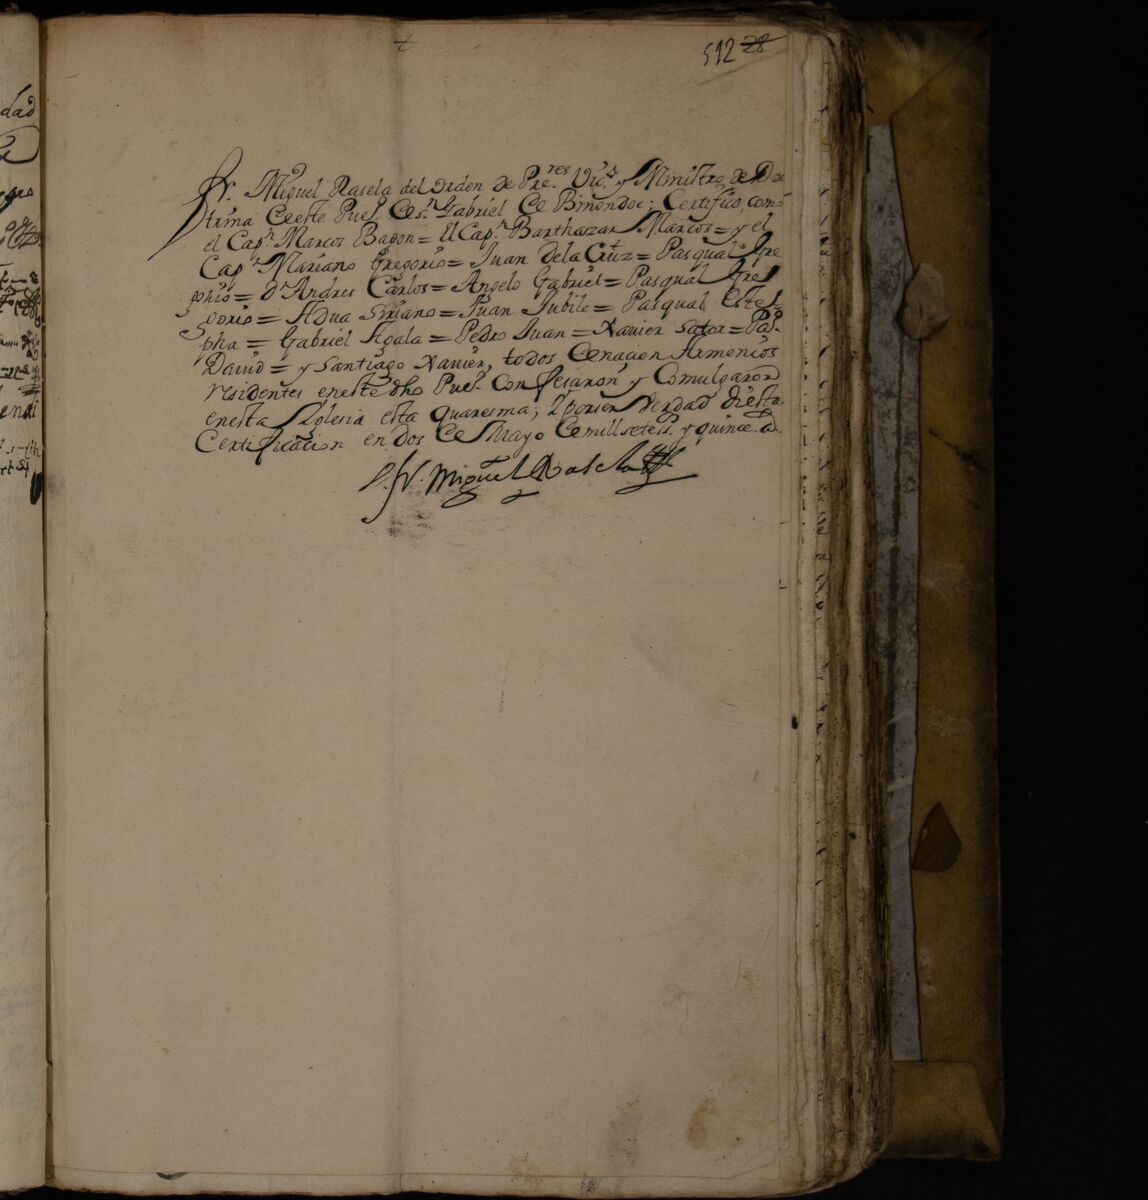 512 28
Fr. Miguel Rasela del orden de Pre.res Vic.º y Ministro de Doc
trina de este Pueº. de Sn. Gabriel de Binondoc; Certifico, como
el Capn. Marcos Bagon = El Capn. Barthazar Marcos = y el
Capn. Mariano Gregorio = Juan de la Cruz = Pasqual
phio = Dn. Andres Carlos = Angelo Gabriel = Pasqual Gre
gorio = Adua Siriano = Juan Jubile = Pasqual Este
pha = Gabriel Agala = Pedro Juan = Xavier Sator =
David = y Santiago Xavier, todos de nacion Armenios
residentes en este dho Pueº. confesaron y Comulgaron
en esta Iglesia esta quaresma; y por ser verdad di esta
Certificacion en dos de Mayo de mill setets. y quince as.
Fr. Miguel Rasela